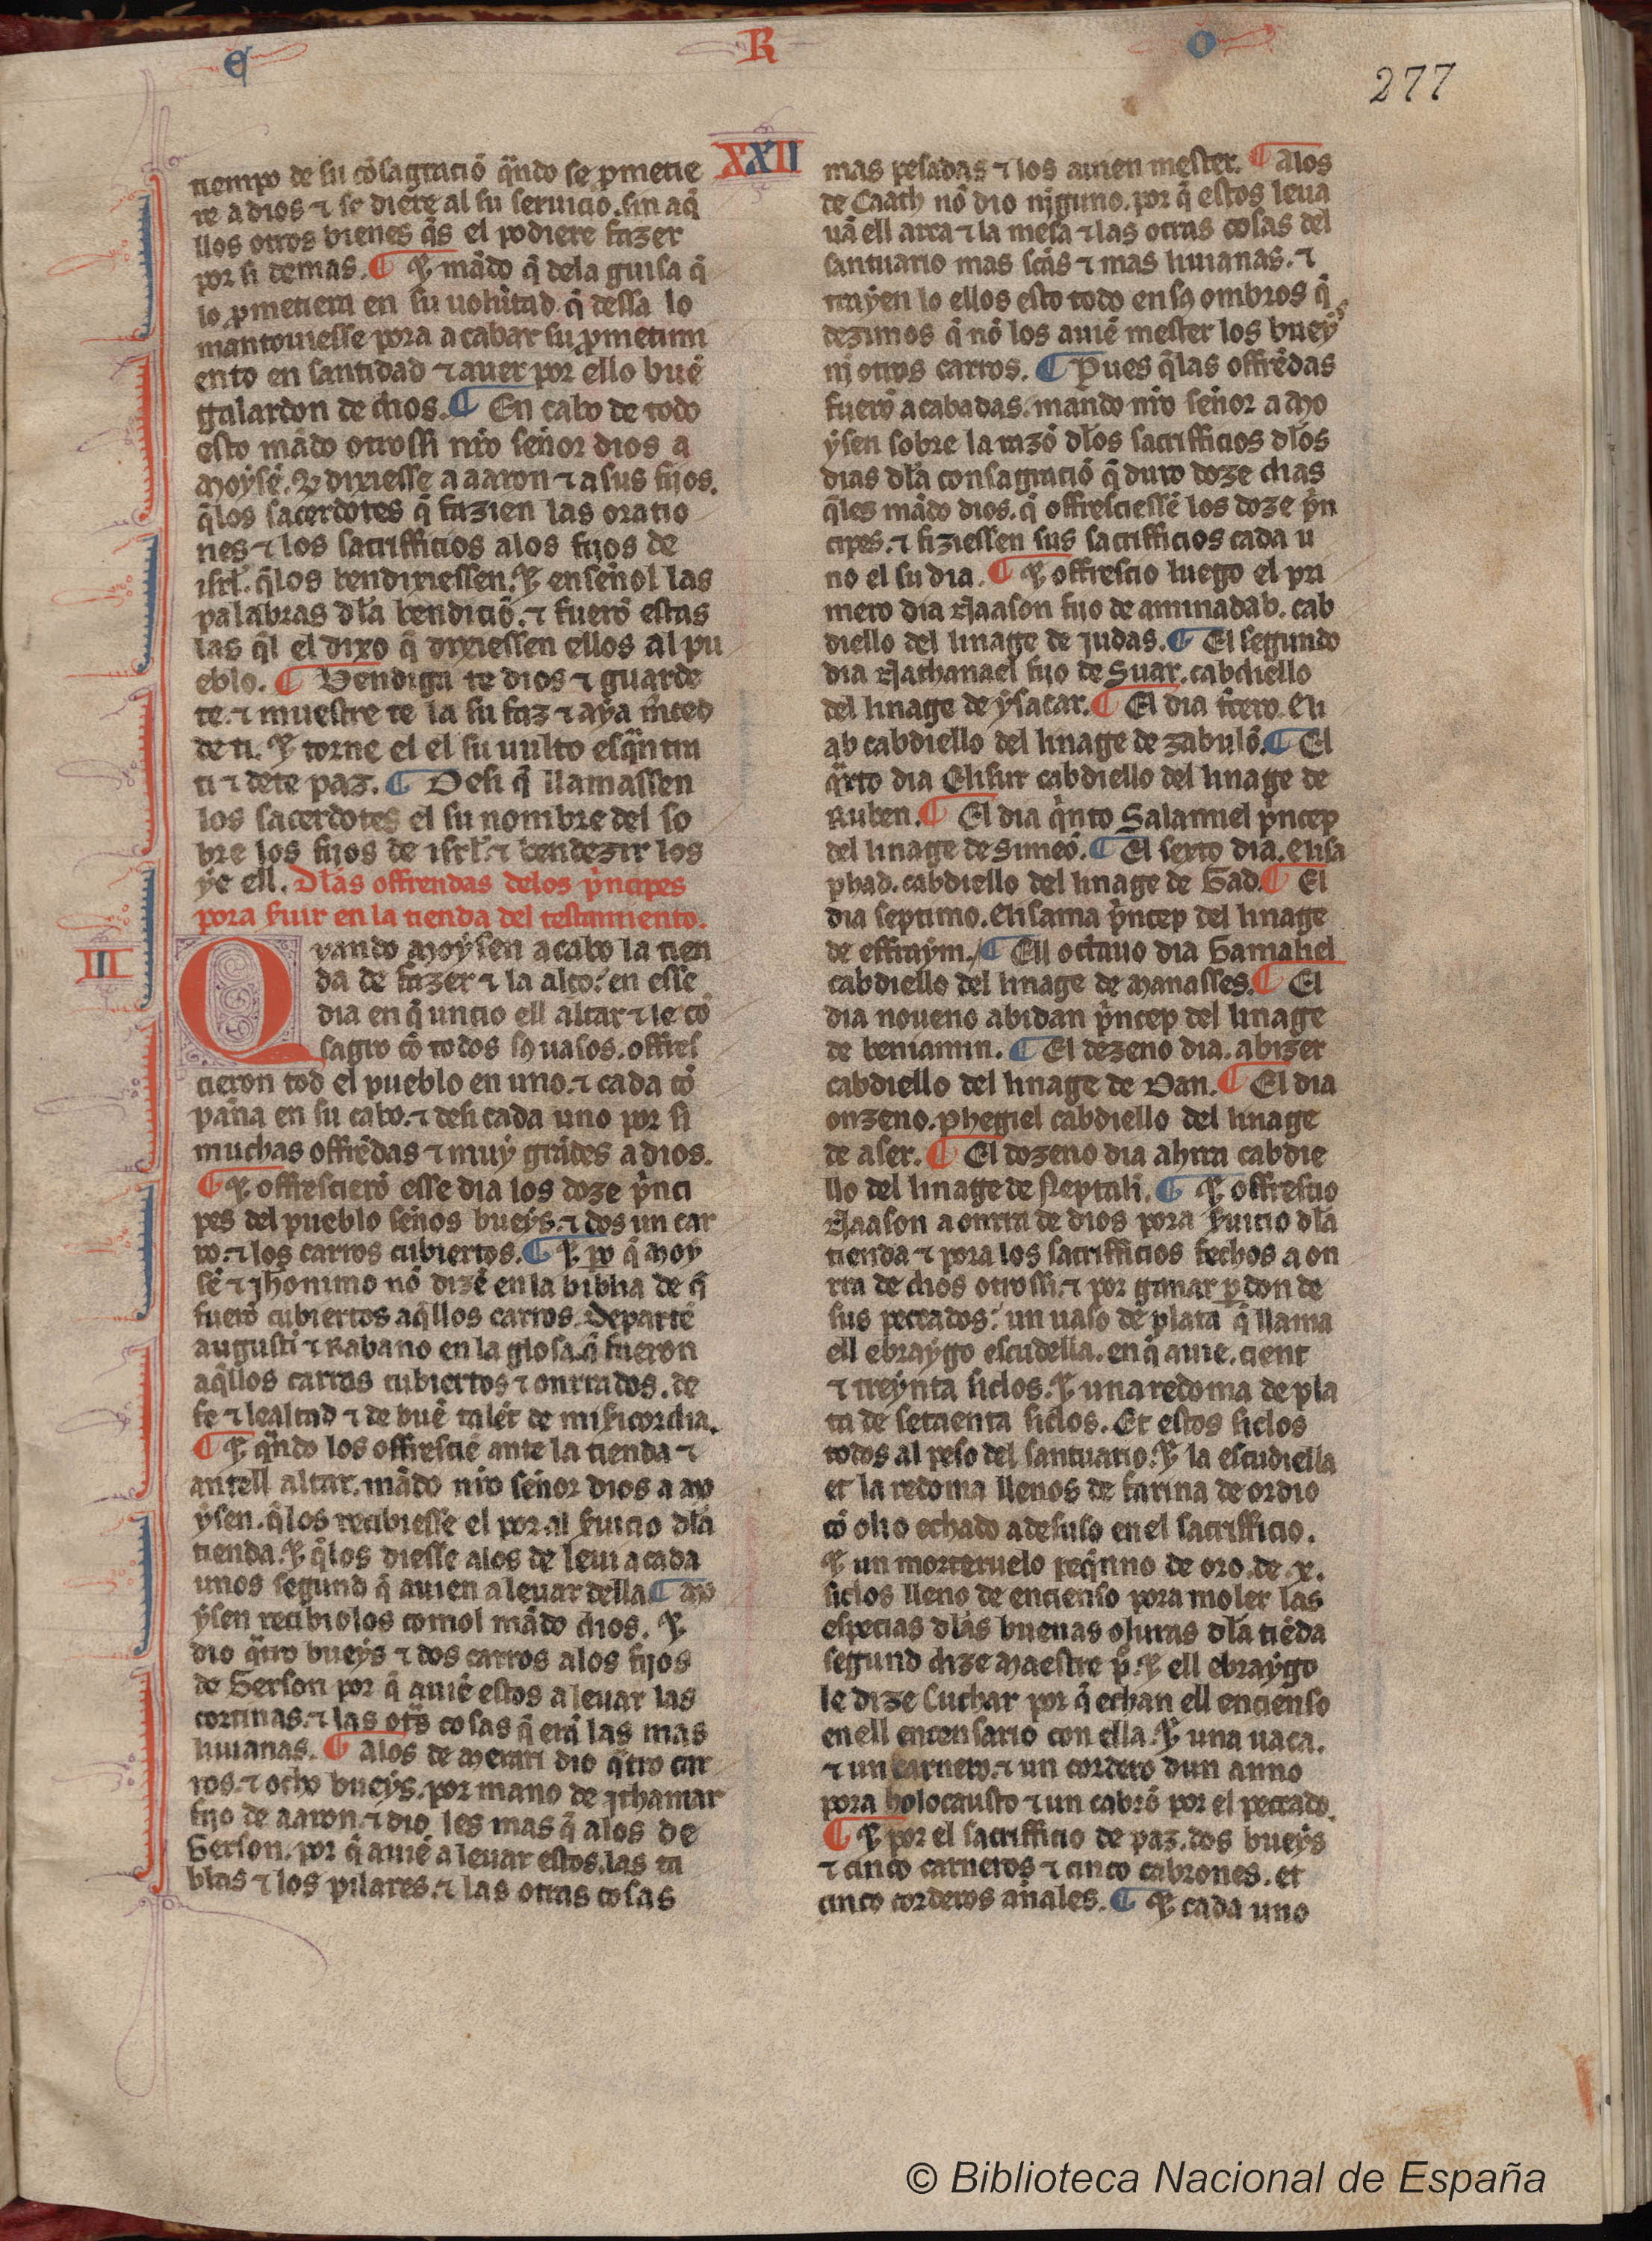 E R O
277
XXII
tiempo de su cõsagraciõ q̃ndo se pmetie
re a dios ⁊ se diere al su seruicio. sin aq̃
llos otros bienes q̃s el podiere fazer
por si demas. ¶ ⁊ mãdo q̃ dela guisa q̃
lo pmetiera en su uolũtad. q̃ dessa lo
mantouiesse pora acabar su pmetimi
ento en santidad ⁊ auer por ello buẽ
gualardon de dios. ¶ En cabo de todo
esto mãdo otrossi nr̃o sennor dios a
Moysẽ. q̃ dixiesse a aaron ⁊ a sus fijos.
q̃ los sacerdotes q̃ fazien las oratio
nes ⁊ los sacrifficios alos fijos de
isrl̃. q̃ los bendixiessen. ⁊ enseñol las
palabras dl̃a bendiciõ. ⁊ fuerõ estas
las q̃l el dixo q̃ dixiessen ellos al pu
eblo. ¶ Bendiga te dios ⁊ guarde
te. ⁊ muestre te la su faz ⁊ aya m̃ced
de ti. ⁊ torne el el su uulto esq̃ntra
ti ⁊ dete paz. ¶ Desi q̃ llamassen
los sacerdotes el su nombre del so
bre los fijos de isrl̃. ⁊ bendezir los
ye ell. Dl̃as offrendas delos p̃ncipes
pora s̃uir en la tienda del testamiento.
III
Quando Moysen acabo la tien
da de fazer ⁊ la alço. en esse
dia en q̃ uncio ell altar ⁊ le cõ
sagro cõ todos sꝯ uasos. offres
cieron tod el pueblo en uno. ⁊ cada cõ
paña en su cabo. ⁊ desi cada uno por si
muchas offrẽdas ⁊ muy grãdes a dios.
¶ ⁊ offrescierõ esse dia los doze p̃nci
pes del pueblo seños bueys. ⁊ dos un car
ro. ⁊ los carros cubiertos. ¶ ⁊ po q̃ Moy
sẽ ⁊ Jhonimo nõ dizẽ en la biblia de q̃
fuerõ cubiertos aq̃llos carros. Departẽ
augusti ⁊ Rabano en la glosa. q̃ fueron
aq̃llos carros cubiertos ⁊ onrrados. de
fe ⁊ lealtad ⁊ de buẽ talẽt de mis̃icordia.
¶ ⁊ q̃ndo los offresciẽ ante la tienda ⁊
antell altar. mãdo nr̃o señor dios a mo
ysen. q̃ los recibiesse el por al s̃uicio dl̃a
tienda. ⁊ q̃ los diesse alos de leui a cada
unos segund q̃ auien a leuar della ¶ Mo
ysen recibiolos comol mãdo dios. ⁊
dio q̃tro bueys ⁊ dos carros alos fijos
de Gerson por q̃ auiẽ estos a leuar las
cortinas. ⁊ las ot̃s cosas q̃ erã las mas
liuianas. ¶ Alos de Merari dio q̃tro car
ros. ⁊ ocho bueys. por mano de Jthamar
fijo de aaron. ⁊ dio les mas q̃ alos de
Gerson. por q̃ auiẽ a leuar estos. las ta
blas ⁊ los pilares. ⁊ las otras cosas
mas pesadas ⁊ los auien mester. ¶ Alos
de Caath nõ dio njguno. por q̃ estos leua
uã ell arca ⁊ la mesa ⁊ las otras cosas del
santuario mas sc̃as ⁊ mas liuianas. ⁊
trayen lo ellos esto todo en sꝯ ombros q̃
dezimos q̃ nõ los auiẽ mester los bueys
nj otros carros. ¶ Pues q̃ las offrẽdas
fuerõ acabadas. mando nr̃o señor a Mo
ysen sobre la razõ dl̃os sacrifficios dl̃os
dias dl̃a consagraciõ q̃ duro doze dias
q̃les mãdo dios. q̃ offresciessẽ los doze p̃n
cipes. ⁊ fiziessen sus sacrifficios cada u
no el su dia. ¶ ⁊ offrescio luego el pri
mero dia Naason fijo de aminadab. cab
diello del linage de judas. ¶ El segundo
dia Nathanael fijo de Suar. cabdiello
del linage de ysacar. ¶ El dia t̃cero. Eli
ab cabdiello del linage de zabulõ. ¶ El
q̃rto dia Elisur cabdiello del linage de
Ruben. ¶ El dia q̃nto Salamiel p̃ncep
del linage de Simeõ. ¶ El sexto dia. Elisa
phad. cabdiello del linage de Gad. ¶ El
dia septimo. Elisama p̃ncep del linage
de effraym. ¶ Ell octauo dia Gamaliel
cabdiello del linage de Manasses. ¶ El
dia noueno abidan p̃ncep del linage
de beniamin. ¶ El dezeno dia. abizer
cabdiello del linage de Dan. ¶ El dia
onzeno. phegiel cabdiello del linage
de aser. ¶ El dozeno dia ahira cabdie
llo del linage de Neptalí. ¶ ⁊ offrescio
Naason a onrra de dios pora s̃uicio dl̃a
tienda ⁊ pora los sacrifficios fechos a on
rra de dios otrossi. ⁊ por ganar pdon de
sus peccados. un uaso de plata q̃ llama
ell ebraygo escudella. en q̃ auie. cient
⁊ treynta siclos. ⁊ una redoma de pla
ta de setaenta siclos. Et estos siclos
todos al peso del santuario. ⁊ la escudiella
et la redoma llenos de farina de ordio
cõ olio echado adesuso en el sacrifficio.
⁊ un morteruelo peq̃nno de oro. de .x.
siclos lleno de encienso pora moler las
especias dl̃as buenas oluras dl̃a tiẽda
segund dize Maestre p̃. ⁊ ell ebraygo
le dize Cuchar por q̃ echan ell encienso
en ell encensario con ella. ⁊ una uaca.
⁊ un carnero. ⁊ un cordero dun anno
pora holocausto ⁊ un cabrõ por el peccado.
¶ ⁊ por el sacrifficio de paz. dos bueys
⁊ cinco carneros ⁊ cinco cabrones. et
cinco corderos añales. ¶ ⁊ cada uno
© Biblioteca Nacional de España